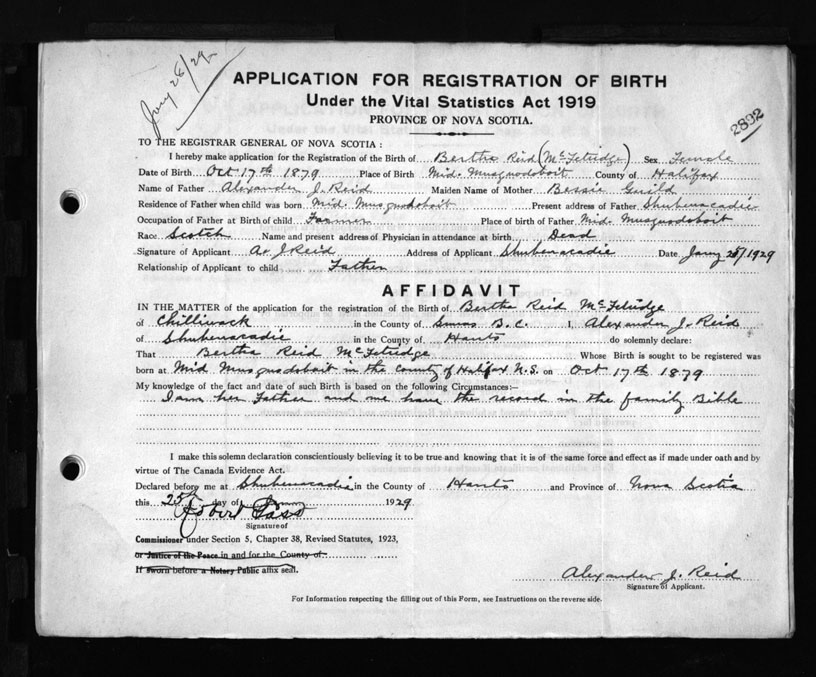 Jany 26/29
APPLICATION FOR REGISTRATION OF BIRTH
Under the Vital Statistics Act 1919
PROVINCE OF NOVA SCOTIA.
2892
TO THE REGISTRAR GENERAL OF NOVA SCOTIA:
I hereby make application for the Registration of the Birth of Bertha Reid (McFetridge) Sex Female
Date of Birth Oct 17th 1879 Place of Birth Mid. Musquodoboit County of Halifax
Name of Father Alexander J. Reid Maiden Name of Mother Bessie Guild
Residence of Father when child was born Mid. Musquodoboit Present address of Father Shubenacadie
Occupation of Father at Birth of child Farmer Place of birth of Father Mid. Musquodoboit
Race Scotch Name and present address of Physician in attendance at birth Dead
Signature of Applicant A. J Reid Address of Applicant Shubenacadie Date Jany 25/1929
Relationship of Applicant to child Father
AFFIDAVIT
IN THE MATTER of the application for the registration of the Birth of Bertha Reid McFetridge
of Chilliwack in the County of B.C. I, Alexander J. Reid
of Shubenacadie in the County of Hants do solemnly declare:
That Bertha Reid McFetridge Whose Birth is sought to be registered was
born at Mid Musquodoboit in the County of Halifax N.S. on Oct 17th 1879
My knowledge of the fact and date of such Birth is based on the following Circumstances:—
I am her Father and me have the record in the family Bible
I make this solemn declaration conscientiously believing it to be true and knowing that it is of the same force and effect as if made under oath and by
virtue of The Canada Evidence Act.
Declared before me at Shubenacadie in the County of Hants and Province of Nova Scotia
this 25th day of Jany 1929
Robert
Signature of
Commissioner under Section 5, Chapter 38, Revised Statutes, 1923,
or Justice of the Peace in and for the County of
If sworn before a Notary Public affix seal.
Alexander J. Reid
Signature of Applicant.
For Information respecting the filling out of this Form, see Instructions on the reverse side.